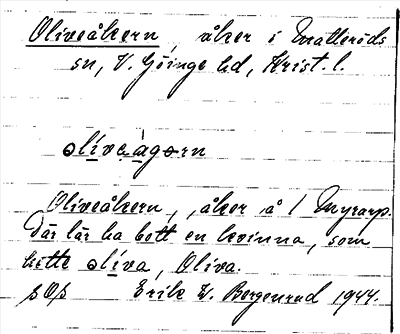 Oliveåkern, åker i Matteröds
sn, V. Göinge hd, Krist. l.
olívaågorn
Oliveåkern, åker å 1 Myrarp.
Där lär ha bott en kvinna, som
hette olíva, Oliva.
Erik W. Bergenrud 1944.